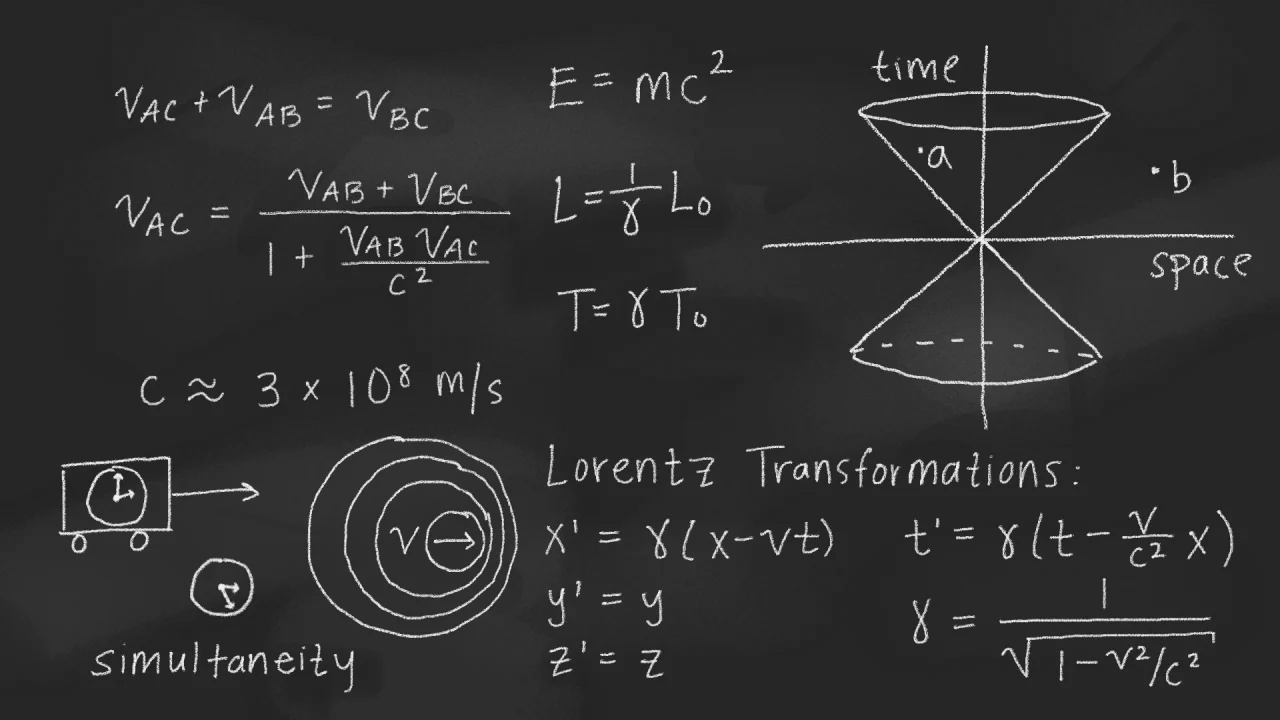 V_AC + V_AB = V_BC
V_AC = (V_AB + V_BC) / (1 + (V_AB V_AC) / c²)
c ≈ 3 x 10⁸ m/s
E = mc²
L = 1/γ L₀
T = γ T₀
time
a
b
space
v
simultaneity
Lorentz Transformations:
x' = γ(x-vt)
y' = y
z' = z
t' = γ(t - v/c² x)
γ = 1 / √(1-v²/c²)